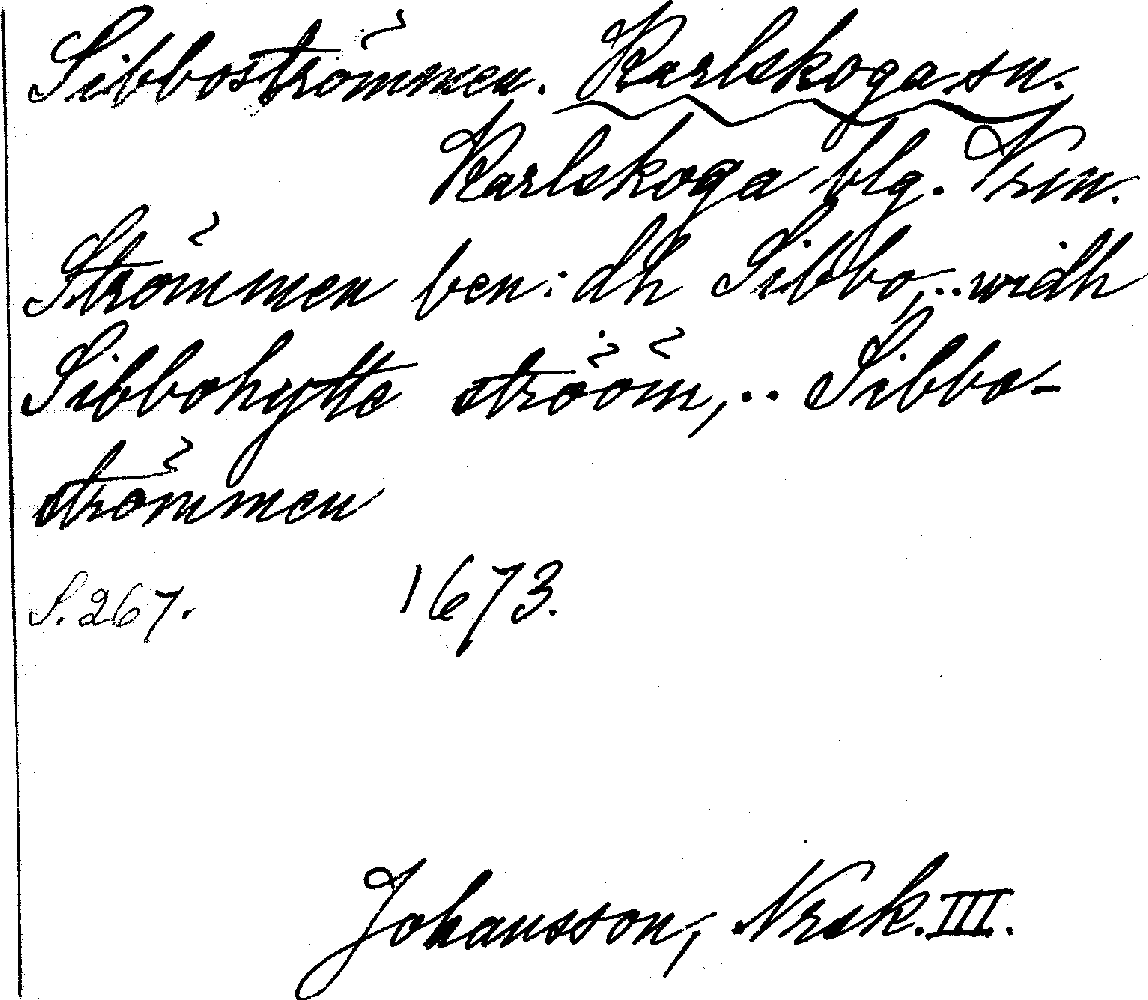 Sibboströmmen. Karlskoga sn.
Karlskoga blg. Vrm.
Strömmen ben:dh Sibbo,.. widh
Sibbohytte strööm,.. Sibbo-
strömmen
S. 267. 1673.
Johansson, Nrsk. III.